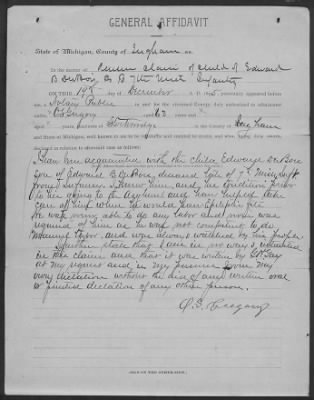 GENERAL AFFIDAVIT
State of Michigan, County of Ingham ss:
In the matter of Pension claim of child of Edward
B. DeBois, Co. B 7th Mich Infantry
ON THIS 19th day of December A. D. 1895, personally appeared before
me, a Notary Public in and for the aforesaid County, duly authorized to administer
oaths O. S. Gregory aged 62 years
of Stockbridge in the County of Ingham
and State of Michigan, well known to me to be reputable and entitled to credit, and who, being duly sworn,
declared in relation to aforesaid case as follows:
I have been acquainted with the child Edward DeBois
son of Edward B. DeBois, deceased late of 7th Mich Inft
from infancy. I knew him, and his condition prior
to his going to the Asylum and have helped take
care of him when he would have Epileptic fits
He was never able to do any labor and none was
required of him as he was not competent to do
manual labor, and was always watched by his
I further state that I am in no way interested
in this claim and that it was written by
at my request and in my presence from my
own dictation without the aid of any written oral
or printed dictation of any other person.
O. S. Gregory